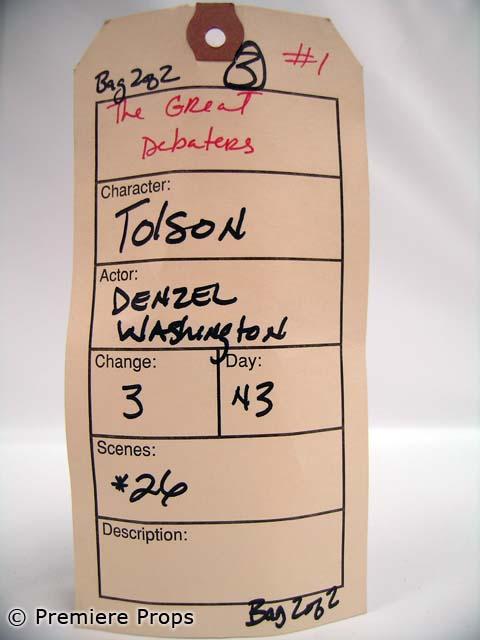 Bag 2of2
3
#1
The Great
Debaters
Character:
Tolson
Actor:
DENZEL
WASHINGTON
Change:
3
Day:
N3
Scenes:
*26
Description:
Bag 2of2
© Premiere Props